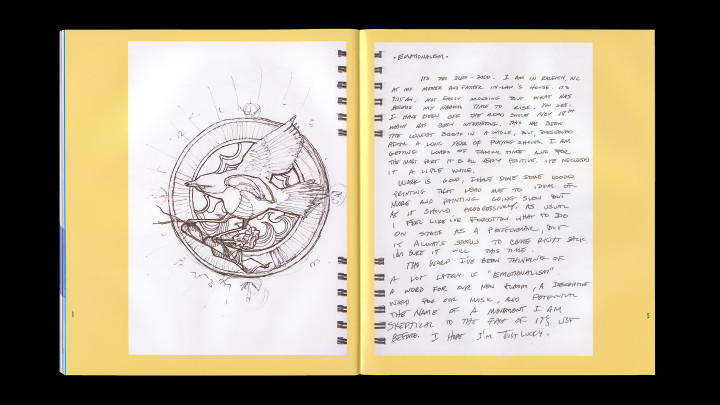 • EMOTIONALISM •
IT'S DEC 26TH - 2006. I AM IN RALEIGH, NC
AT MY MOTHER AND FATHER IN-LAW'S HOUSE. IT'S
9:15 AM, NOT EARLY MORNING BUT WHAT HAS
BECOME MY NORMAL TIME TO RISE. YOU SEE,
I HAVE BEEN OFF THE ROAD SINCE NOV 18TH
WHICH HAS BEEN INTERESTING. THIS HAS BEEN
THE LONGEST BREAK IN A WHILE, BUT, DESERVED
AFTER A LONG YEAR OF PLAYING SHOWS. I AM
GETTING LOADS OF FAMILY TIME AND FOR
THE MOST PART IT IS ALL VERY POSITIVE. I'VE NEEDED
IT A LITTLE WHILE.
WORK IS GOOD, I HAVE DONE SOME GOOD
PRINTING THAT LEAD ME TO IDEAS OF
MORE AND PAINTING GOING SLOW BUT
AS IT SHOULD PROGRESSIVELY. AS USUAL
I FEEL LIKE I'VE FORGOTTEN WHAT TO DO
ON STAGE AS A PERFORMER, BUT
IT ALWAYS SEEMS TO COME RIGHT BACK
I'M SURE IT WILL THIS TIME.
THE WORD I'VE BEEN THINKING OF
A LOT LATELY IS "EMOTIONALISM"
A WORD FOR OUR NEW ALBUM, A DESCRIPTIVE
WORD FOR OUR MUSIC, AND POTENTIAL
THE NAME OF A MOVEMENT. I AM
SKEPTICAL TO THE FACT OF IT'S USE
BEFORE. I HOPE I'M JUST LUCKY.